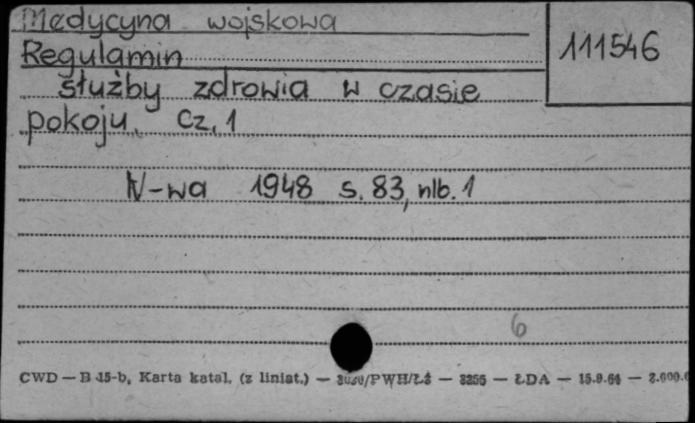 Medycyna wojskowa
111546
Regulamin
służby zdrowia w czasie
pokoju. Cz. 1
W-wa 1948 s. 83, nlb. 1
6
CWD — B 15-b, Karta katal. (z liniat.) — /PWH/ŁŻ — 3255 — ŁDA — 15.9.64 —